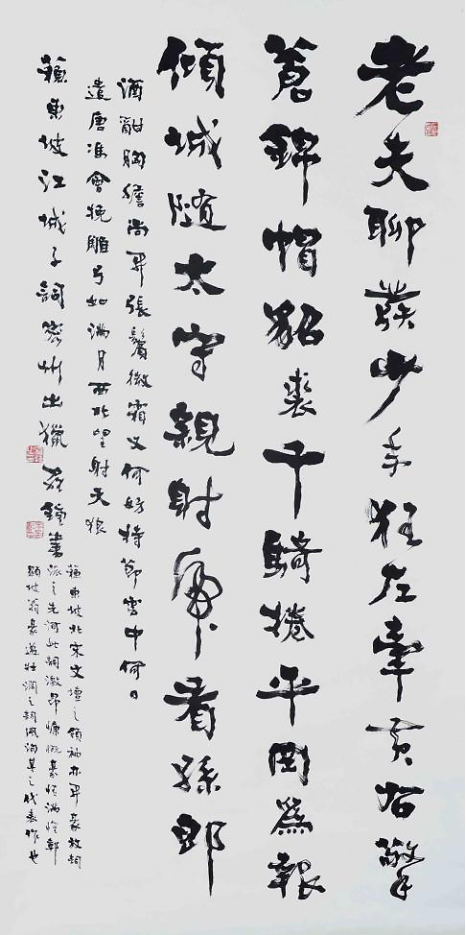 老夫聊發少年狂左牽黃右擎
蒼錦帽貂裘千騎捲平岡為報
傾城隨太守親射虎看孫郎
酒酣胸膽尚開張鬢微霜又何妨持節雲中何日
遣唐馮會挽雕弓如滿月西北望射天狼
蘇東坡江城子詞密州出獵 鐘書
蘇東坡北宋文壇之領袖亦開豪放詞
派之先河此詞激昂慷慨豪情滿懷彰
顯坡翁豪邁壯闊之詞風洵其之代表作也